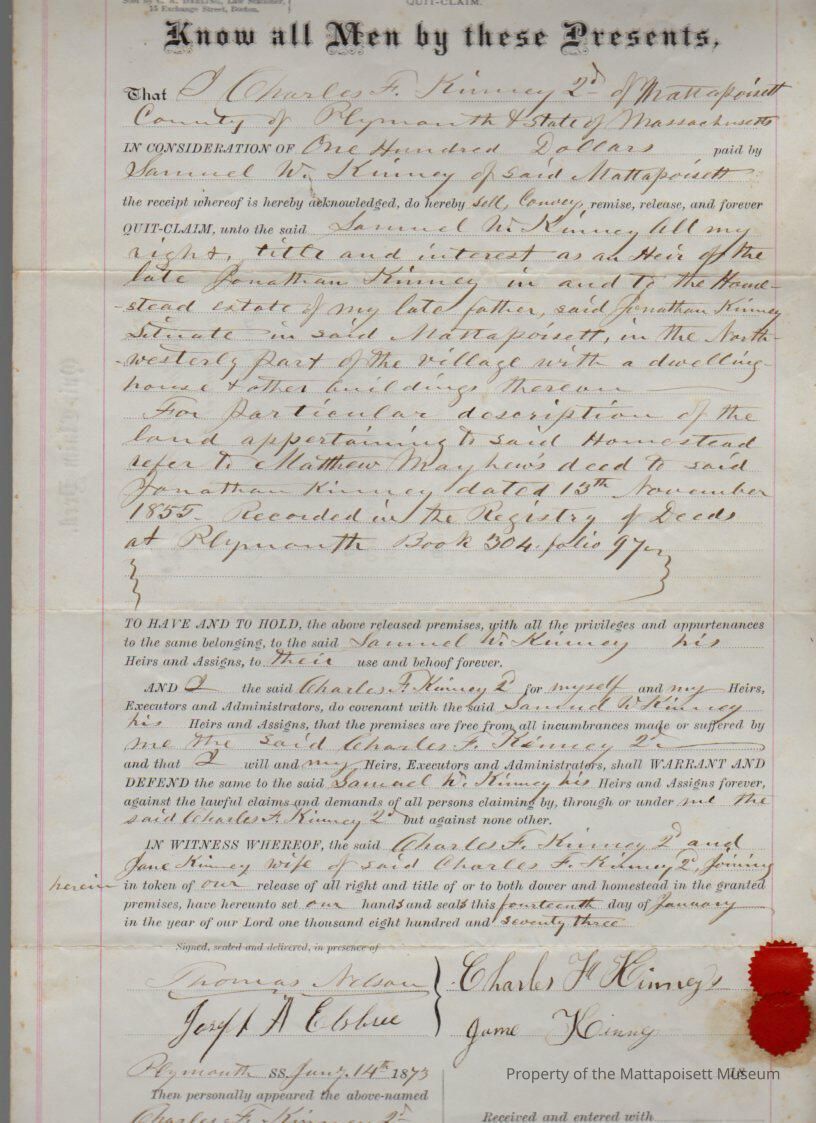 Sold by C. A. DARLING, Law Stationer,
15 Exchange Street, Boston.
QUIT-CLAIM.
Know all Men by these Presents,
That I Charles F. Kinney 2d of Mattapoisett
County of Plymouth & State of Massachusetts
IN CONSIDERATION OF One Hundred Dollars paid by
Samuel W. Kinney of said Mattapoisett
the receipt whereof is hereby acknowledged, do hereby sell, Convey, remise, release, and forever
QUIT-CLAIM, unto the said Samuel W. Kinney All my
right, title and interest as an Heir of the
late Jonathan Kinney in and to the Home-
-stead estate of my late father, said Jonathan Kinney
Situate in said Mattapoisett, in the North-
-westerly part of the village with a dwelling-
house & other buildings thereon
For particular description of the
land appertaining to said Homestead
refer to Matthew Mayhew's deed to said
Jonathan Kinney dated 13th November
1855. Recorded in the Registry of Deeds
at Plymouth Book 304. folio 97
TO HAVE AND TO HOLD, the above released premises, with all the privileges and appurtenances
to the same belonging, to the said Samuel W. Kinney his
Heirs and Assigns, to their use and behoof forever.
AND I the said Charles F. Kinney 2d for myself and my Heirs,
Executors and Administrators, do covenant with the said Samuel W Kinney
his Heirs and Assigns, that the premises are free from all incumbrances made or suffered by
me the said Charles F. Kinney 2d
and that I will and my Heirs, Executors and Administrators, shall WARRANT AND
DEFEND the same to the said Samuel W. Kinney his Heirs and Assigns forever,
against the lawful claims and demands of all persons claiming by, through or under me the
said Charles F. Kinney 2d but against none other.
IN WITNESS WHEREOF, the said Charles F. Kinney 2d and
Jane Kinney wife of said Charles F. Kinney 2d, joining
herein in token of our release of all right and title of or to both dower and homestead in the granted
premises, have hereunto set our hands and seals this fourteenth day of January
in the year of our Lord one thousand eight hundred and seventy three
Signed, sealed and delivered, in presence of
Thomas Nelson Charles F Kinney
Joseph Jane Kinney
Plymouth SS. Jany. 14th 1873
Property of the Mattapoisett Museum
Then personally appeared the above-named
Charles F. Kinney 2d
Received and entered with